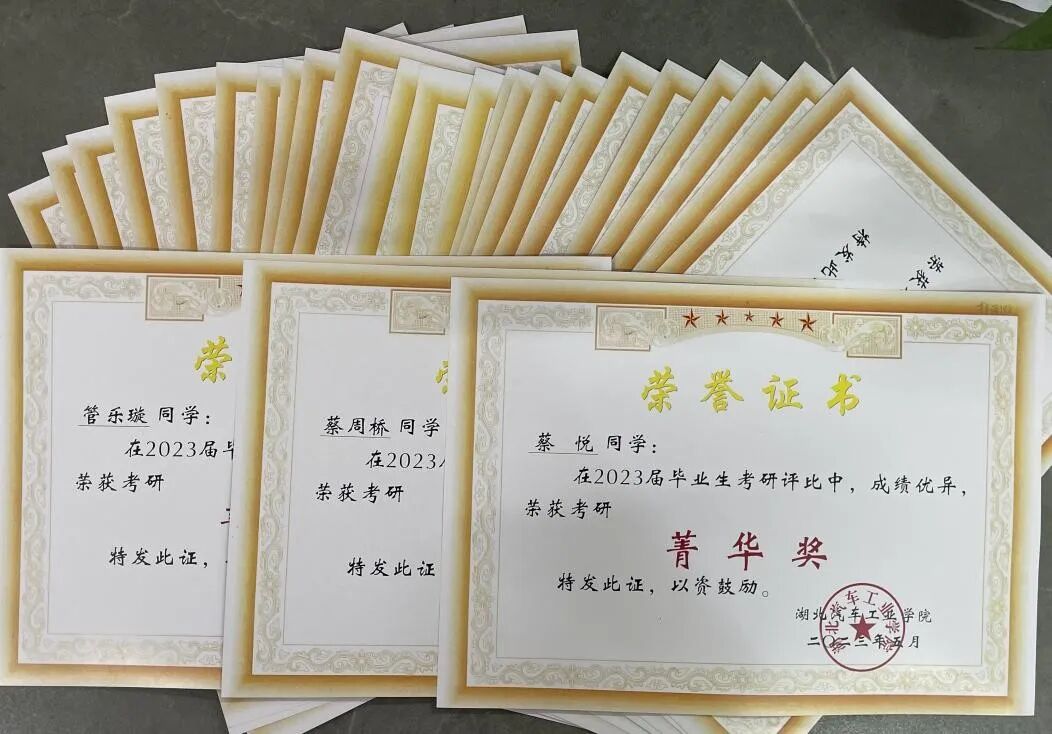 荣
管乐璇 同学：
在2023届毕
荣获考研
特发此证，
蔡周桥 同学
在2023
荣获考研
特发此证
荣誉证书
蔡 悦 同学：
在2023届毕业生考研评比中，成绩优异，
荣获考研
菁华奖
特发此证，以资鼓励。
湖北汽车工业学院
二〇二三年五月
荣获
特发此